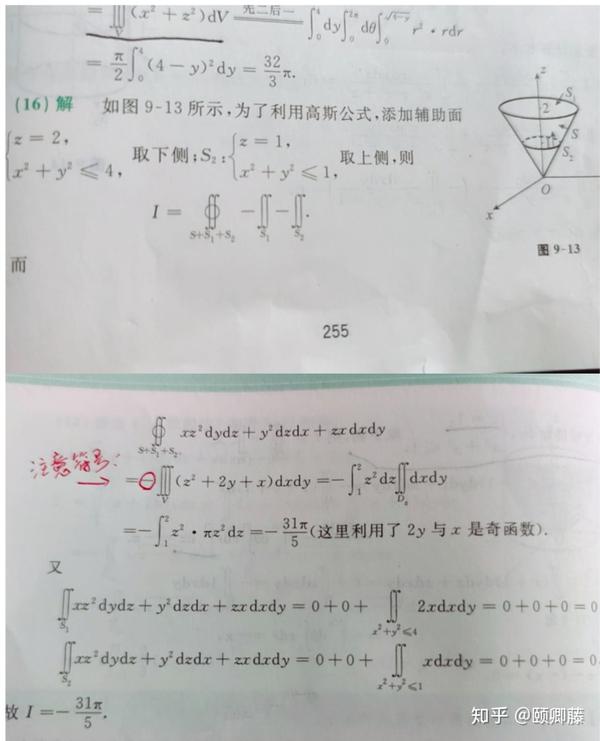 = ∭_V (x² + z²)dV 先二后一 ∫₀⁴dy∫₀^{2π}dθ∫₀^{√(4-y)} r²·rdr
= π/2 ∫₀⁴(4-y)²dy = 32/3 π.
(16) 解 如图 9-13 所示,为了利用高斯公式,添加辅助面
{z = 2, x² + y² ≤ 4, 取下侧; S₂: {z = 1, x² + y² ≤ 1, 取上侧,则
I = ∯_{S+S₁+S₂} - ∬_{S₁} - ∬_{S₂}.
而
z
S₁
2
S
S₂
O
x
图 9-13
255
∯_{S+S₁+S₂} xz²dydz + y²dzdx + zxdxdy
注意符号:
= -∭_V (z² + 2y + x)dxdy = -∫₁² z²dz∬_{D_z}dxdy
= -∫₁² z²·πz²dz = -31π/5 (这里利用了 2y 与 x 是奇函数).
又
∬_{S₁} xz²dydz + y²dzdx + zxdxdy = 0+0+ ∬_{x²+y²≤4} 2xdxdy = 0+0+0=0
∬_{S₂} xz²dydz + y²dzdx + zxdxdy = 0+0+ ∬_{x²+y²≤1} xdxdy = 0+0+0=0
故 I = -31π/5.
知乎 @颐卿藤